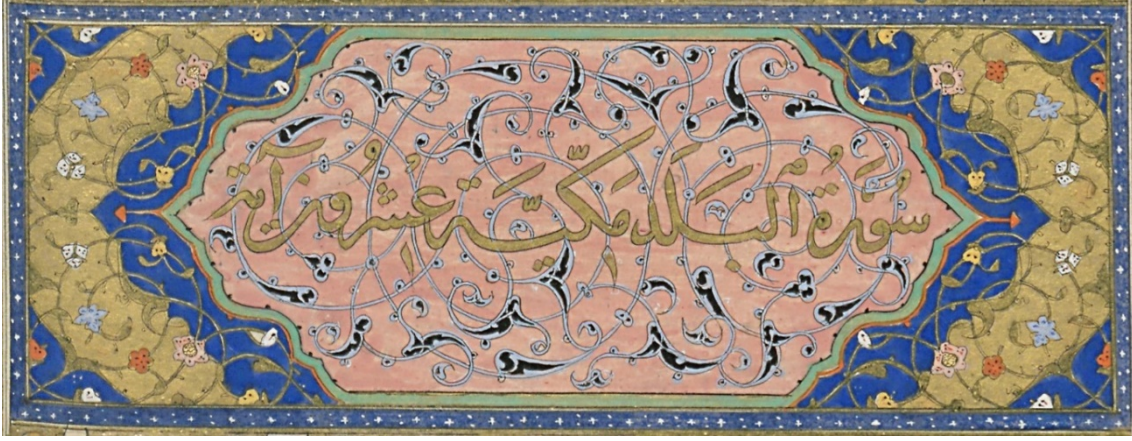 سُورَةُ الْبَلَدِ مَكِّيَّة عِشرُونَ آية